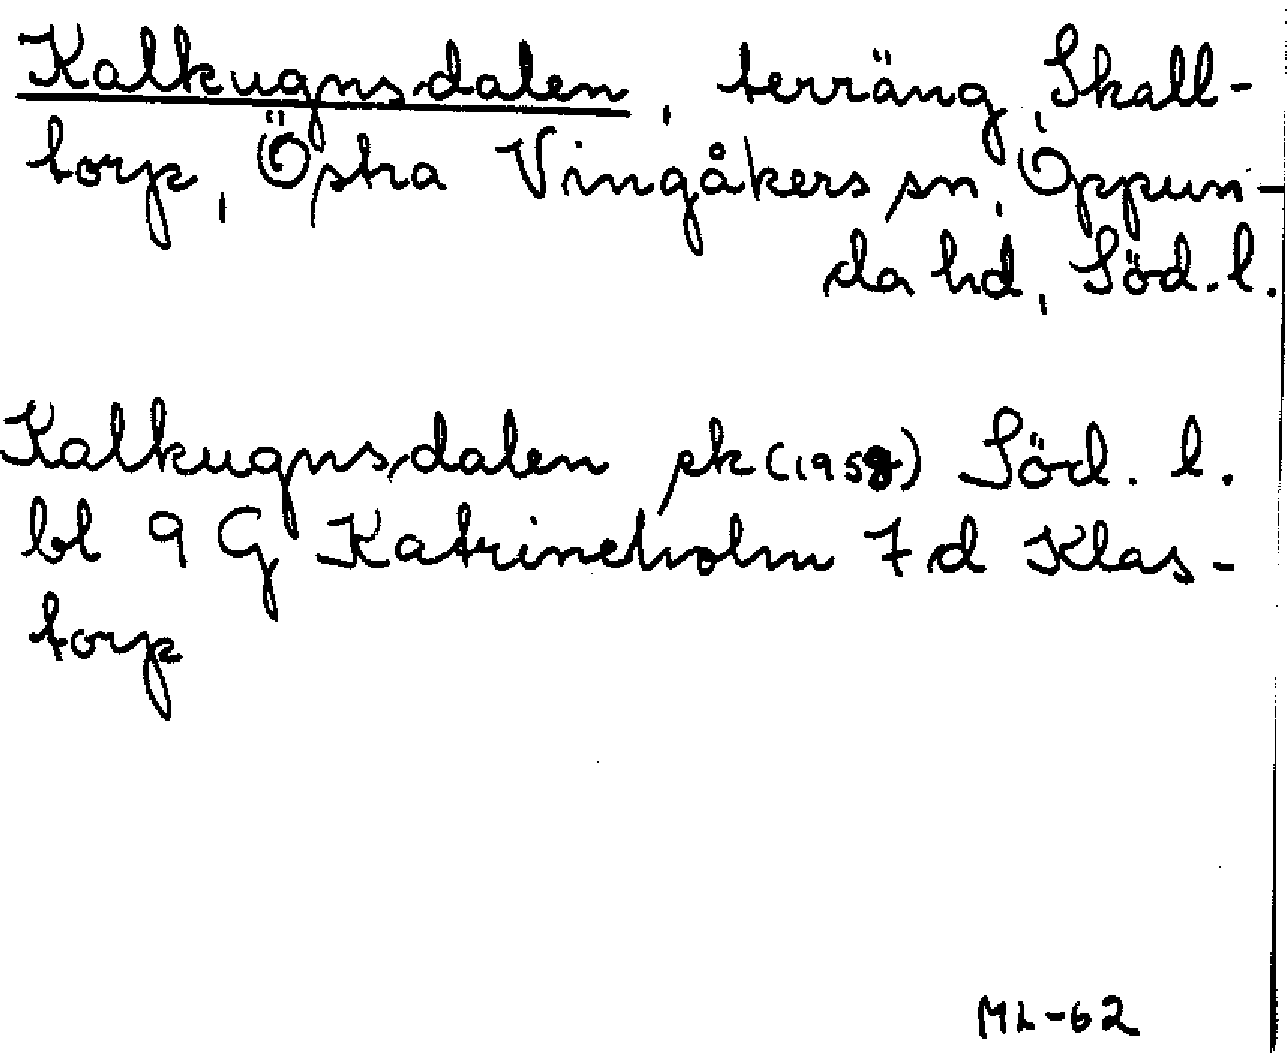 Kalkugnsdalen, terräng, Skall-
torp, Östra Vingåkers sn, Oppun-
da hd, Söd. l.
Kalkugnsdalen ek (1958) Söd. l.
bl 9 G Katrineholm 7 d Klas-
torp
ML-62